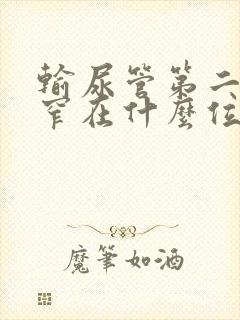 輸尿管第二
窄在什麼位
魔筆如酒